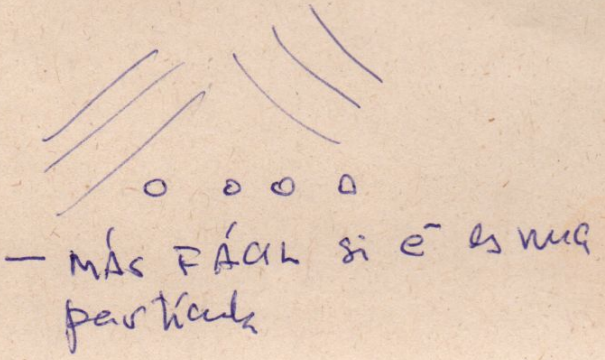 — MÁS FÁCIL si e⁻ es una
partícula